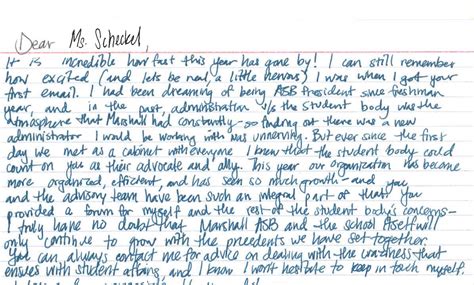 Dear Ms. Scheckel,
It is incredible how fast this year has gone by! I can still remember
how excited (and lets be real, a little nervous) I was when I got your
first email. I had been dreaming of being ASB President since freshman
year, and in the past, administration v/s the student body was the
atmosphere that Marshall had constantly - so finding out there was a new
administrator I would be working with was unnerving. But ever since the first
day we met as a cabinet with everyone, I knew that the student body could
count on you as their advocate and ally. This year our organization has become
more organized, efficient, and has seen so much growth - and you
and the advisory team have been such an integral part of that. You
provided a for myself and the rest of the student body's concerns-
I truly have no doubt that Marshall ASB and the school itself will
only continue to grow with the precedents we have set together.
You can always contact me for advice on dealing with the that
ensues with student affairs, and I know I won't hesitate to keep in touch myself.